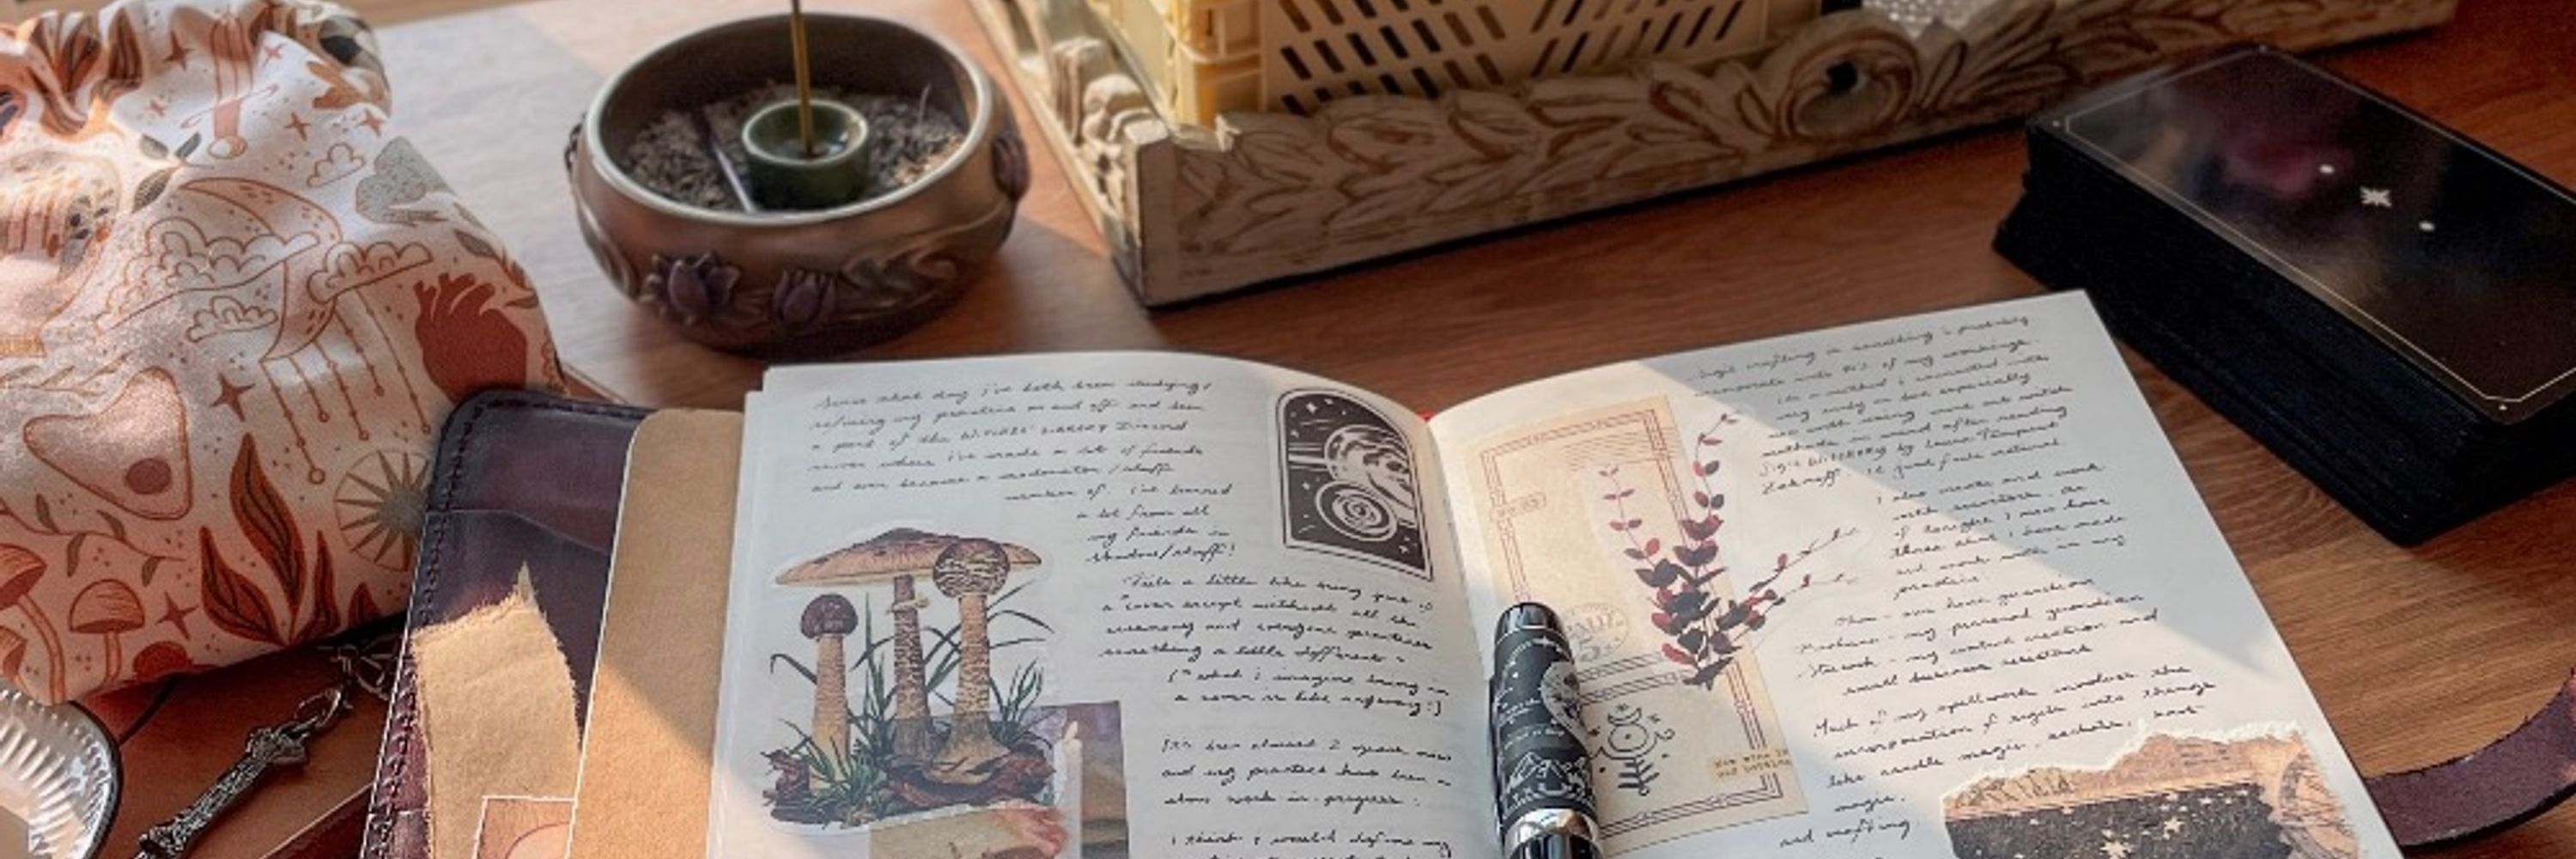 Since that day i've both been studying/
refining my practice on and off and been
a part of the Witches' Discord
server where i've made a lot of friends
and even became a moderator / staff
member of. i've learned
a lot from all
my friends in
Feels a little like being part of
a coven except without all the
ceremony and everyone practices
something a little different.
(* what i imagine being in
a coven is like anyway!)
It's been almost 2 years now
and my practice has been a
slow work in progress.
i think i would define my
Sigil crafting is something i probably
incorporate into 90% of my workings.
it's a method i connected with
very early on but especially
Sigil Witchery by Laura Tempest
Zakroff. it just feels natural.
i also create and work
with servitors. As
of tonight i now have
three that i have made
and work with in my
practice.
- our home guardian
- my personal guardian
- my content creation and
small business assistant
Much of my spellwork involves the
incorporation of sigils into things
like candle magic, sachets, knot
magic,
and crafting